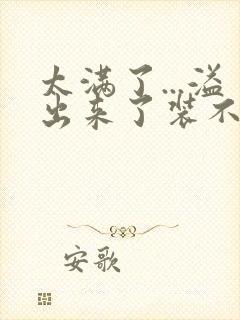 太满了…溢
出来了装不
安歌